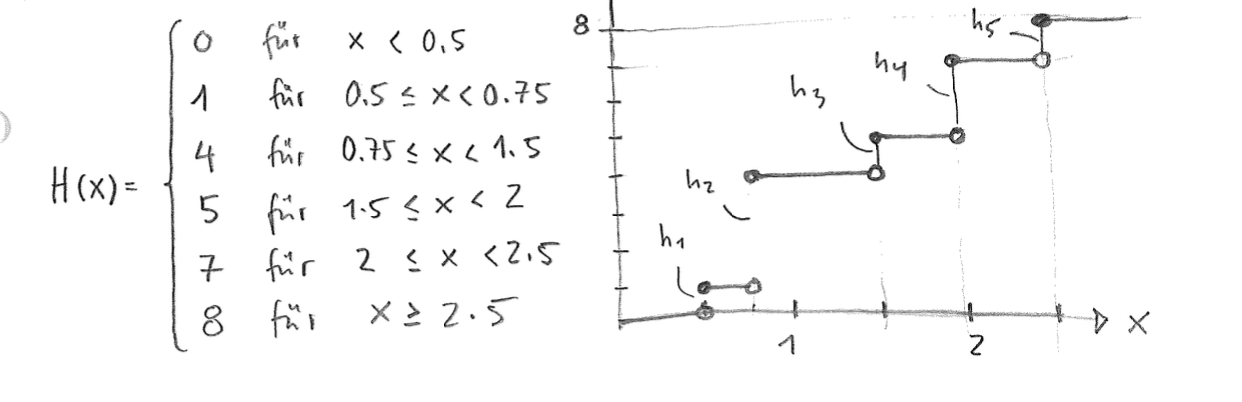 H(x) =
0 für x < 0,5
1 für 0.5 ≤ x < 0.75
4 für 0.75 ≤ x < 1.5
5 für 1.5 ≤ x < 2
7 für 2 ≤ x < 2.5
8 für x ≥ 2.5
8
h5
h4
h3
h2
h1
1 2 x